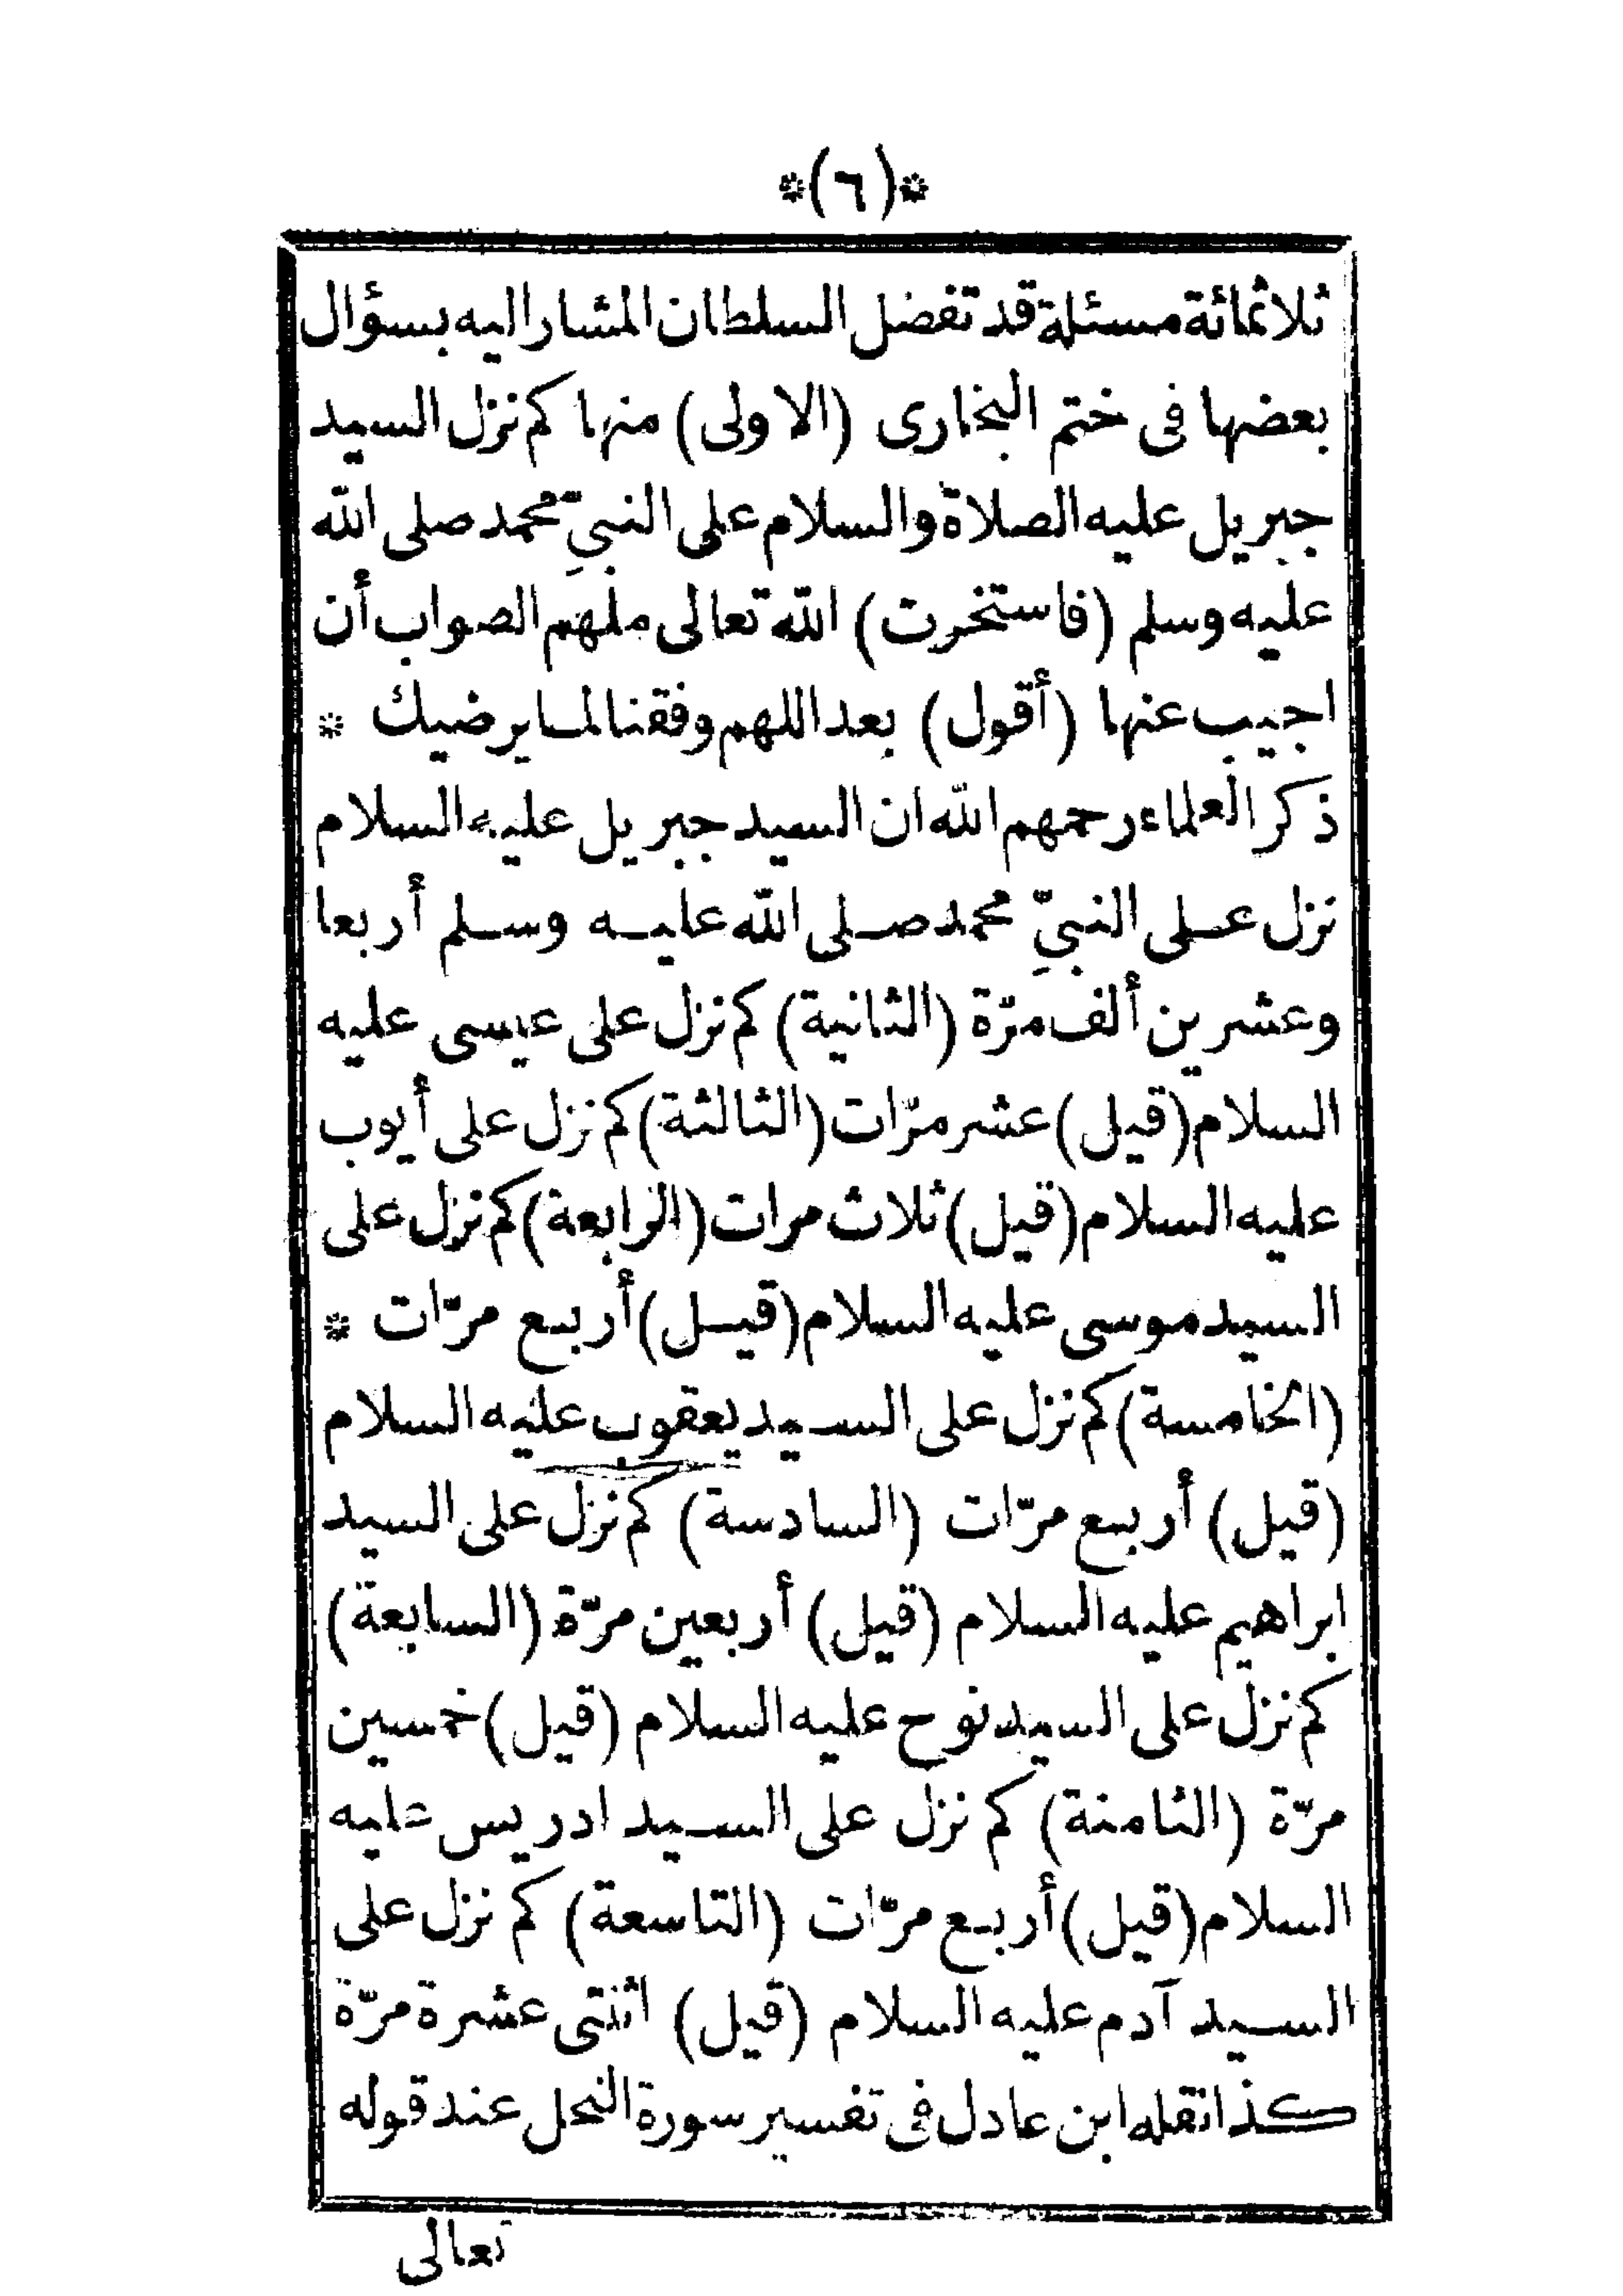 *(٦)*
ثلاثمائة مسئلة قد تفضل السلطان المشار اليه بسؤال
بعضها فى ختم البخارى (الاولى) منها كم نزل السيد
جبريل عليه الصلاة والسلام على النبيّ محمد صلى الله
عليه وسلم (فاستخرت) الله تعالى ملهم الصواب أن
اجيب عنها (أقول) بعد اللهم وفقنا لما يرضيك *
ذكر العلماء رحمهم الله ان السيد جبريل عليه السلام
نزل على النبيّ محمد صلى الله عليه وسلم أربعا
وعشرين ألف مرّة (الثانية) كم نزل على عيسى عليه
السلام (قيل) عشر مرّات (الثالثة) كم نزل على أيوب
عليه السلام (قيل) ثلاث مرات (الرابعة) كم نزل على
السيد موسى عليه السلام (قيل) أربع مرّات *
(الخامسة) كم نزل على السيد يعقوب عليه السلام
(قيل) أربع مرّات (السادسة) كم نزل على السيد
ابراهيم عليه السلام (قيل) أربعين مرّة (السابعة)
كم نزل على السيد نوح عليه السلام (قيل) خمسين
مرّة (الثامنة) كم نزل على السيد ادريس عليه
السلام (قيل) أربع مرّات (التاسعة) كم نزل على
السيد آدم عليه السلام (قيل) اثنتى عشرة مرّة
كذا نقله ابن عادل فى تفسير سورة النحل عند قوله
تعالى